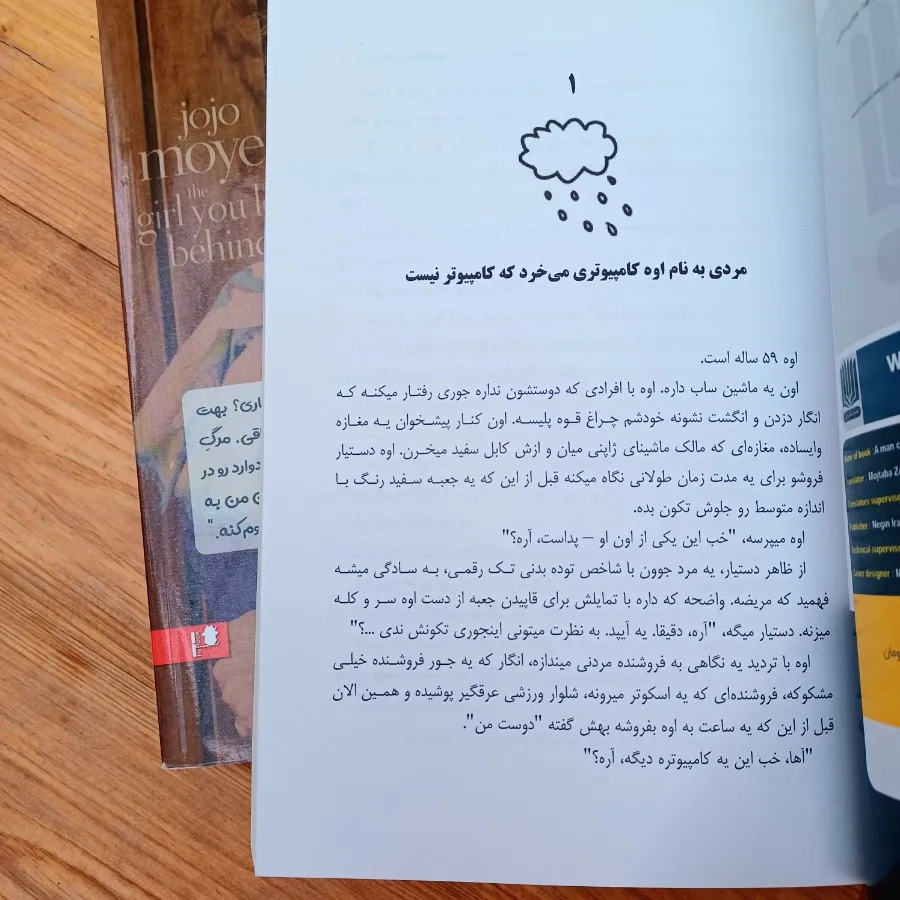 ۱
مردی به نام اوه کامپیوتری می‌خرد که کامپیوتر نیست
اوه ۵۹ ساله است.
اون یه ماشین ساب داره. اوه با افرادی که دوستشون نداره جوری رفتار میکنه که
انگار دزدن و انگشت نشونه خودشم چراغ قوه پلیسه. اون کنار پیشخوان یه مغازه
وایساده، مغازه‌ای که مالک ماشینای ژاپنی میان و ازش کابل سفید میخرن. اوه دستیار
فروشو برای یه مدت زمان طولانی نگاه میکنه قبل از این که یه جعبه سفید رنگ با
اندازه متوسط رو جلوش تکون بده.
اوه میپرسه، "خب این یکی از اون او – پداست، آره؟"
از ظاهر دستیار، یه مرد جوون با شاخص توده بدنی تک رقمی، به سادگی میشه
فهمید که مریضه. واضحه که داره با تمایلش برای قاپیدن جعبه از دست اوه سر و کله
میزنه. دستیار میگه، "آره، دقیقا. یه آیپد. به نظرت میتونی اینجوری تکونش ندی ...؟"
اوه با تردید یه نگاهی به فروشنده مردنی میندازه، انگار که یه جور فروشنده خیلی
مشکوکه، فروشنده‌ای که یه اسکوتر میرونه، شلوار ورزشی عرقگیر پوشیده و همین الان
قبل از این که یه ساعت به اوه بفروشه بهش گفته "دوست من".
"آها، خب این یه کامپیوتره دیگه، آره؟"
jojo
moye
the
girl you l
behind
اری؟ بهت
مرگِ
دوارد رو در
من به
وم کنه."
W
of book : A man c
: Mojtaba Z
supervise
Publisher : Negin Ira
Technical supervise
Cover designer : M